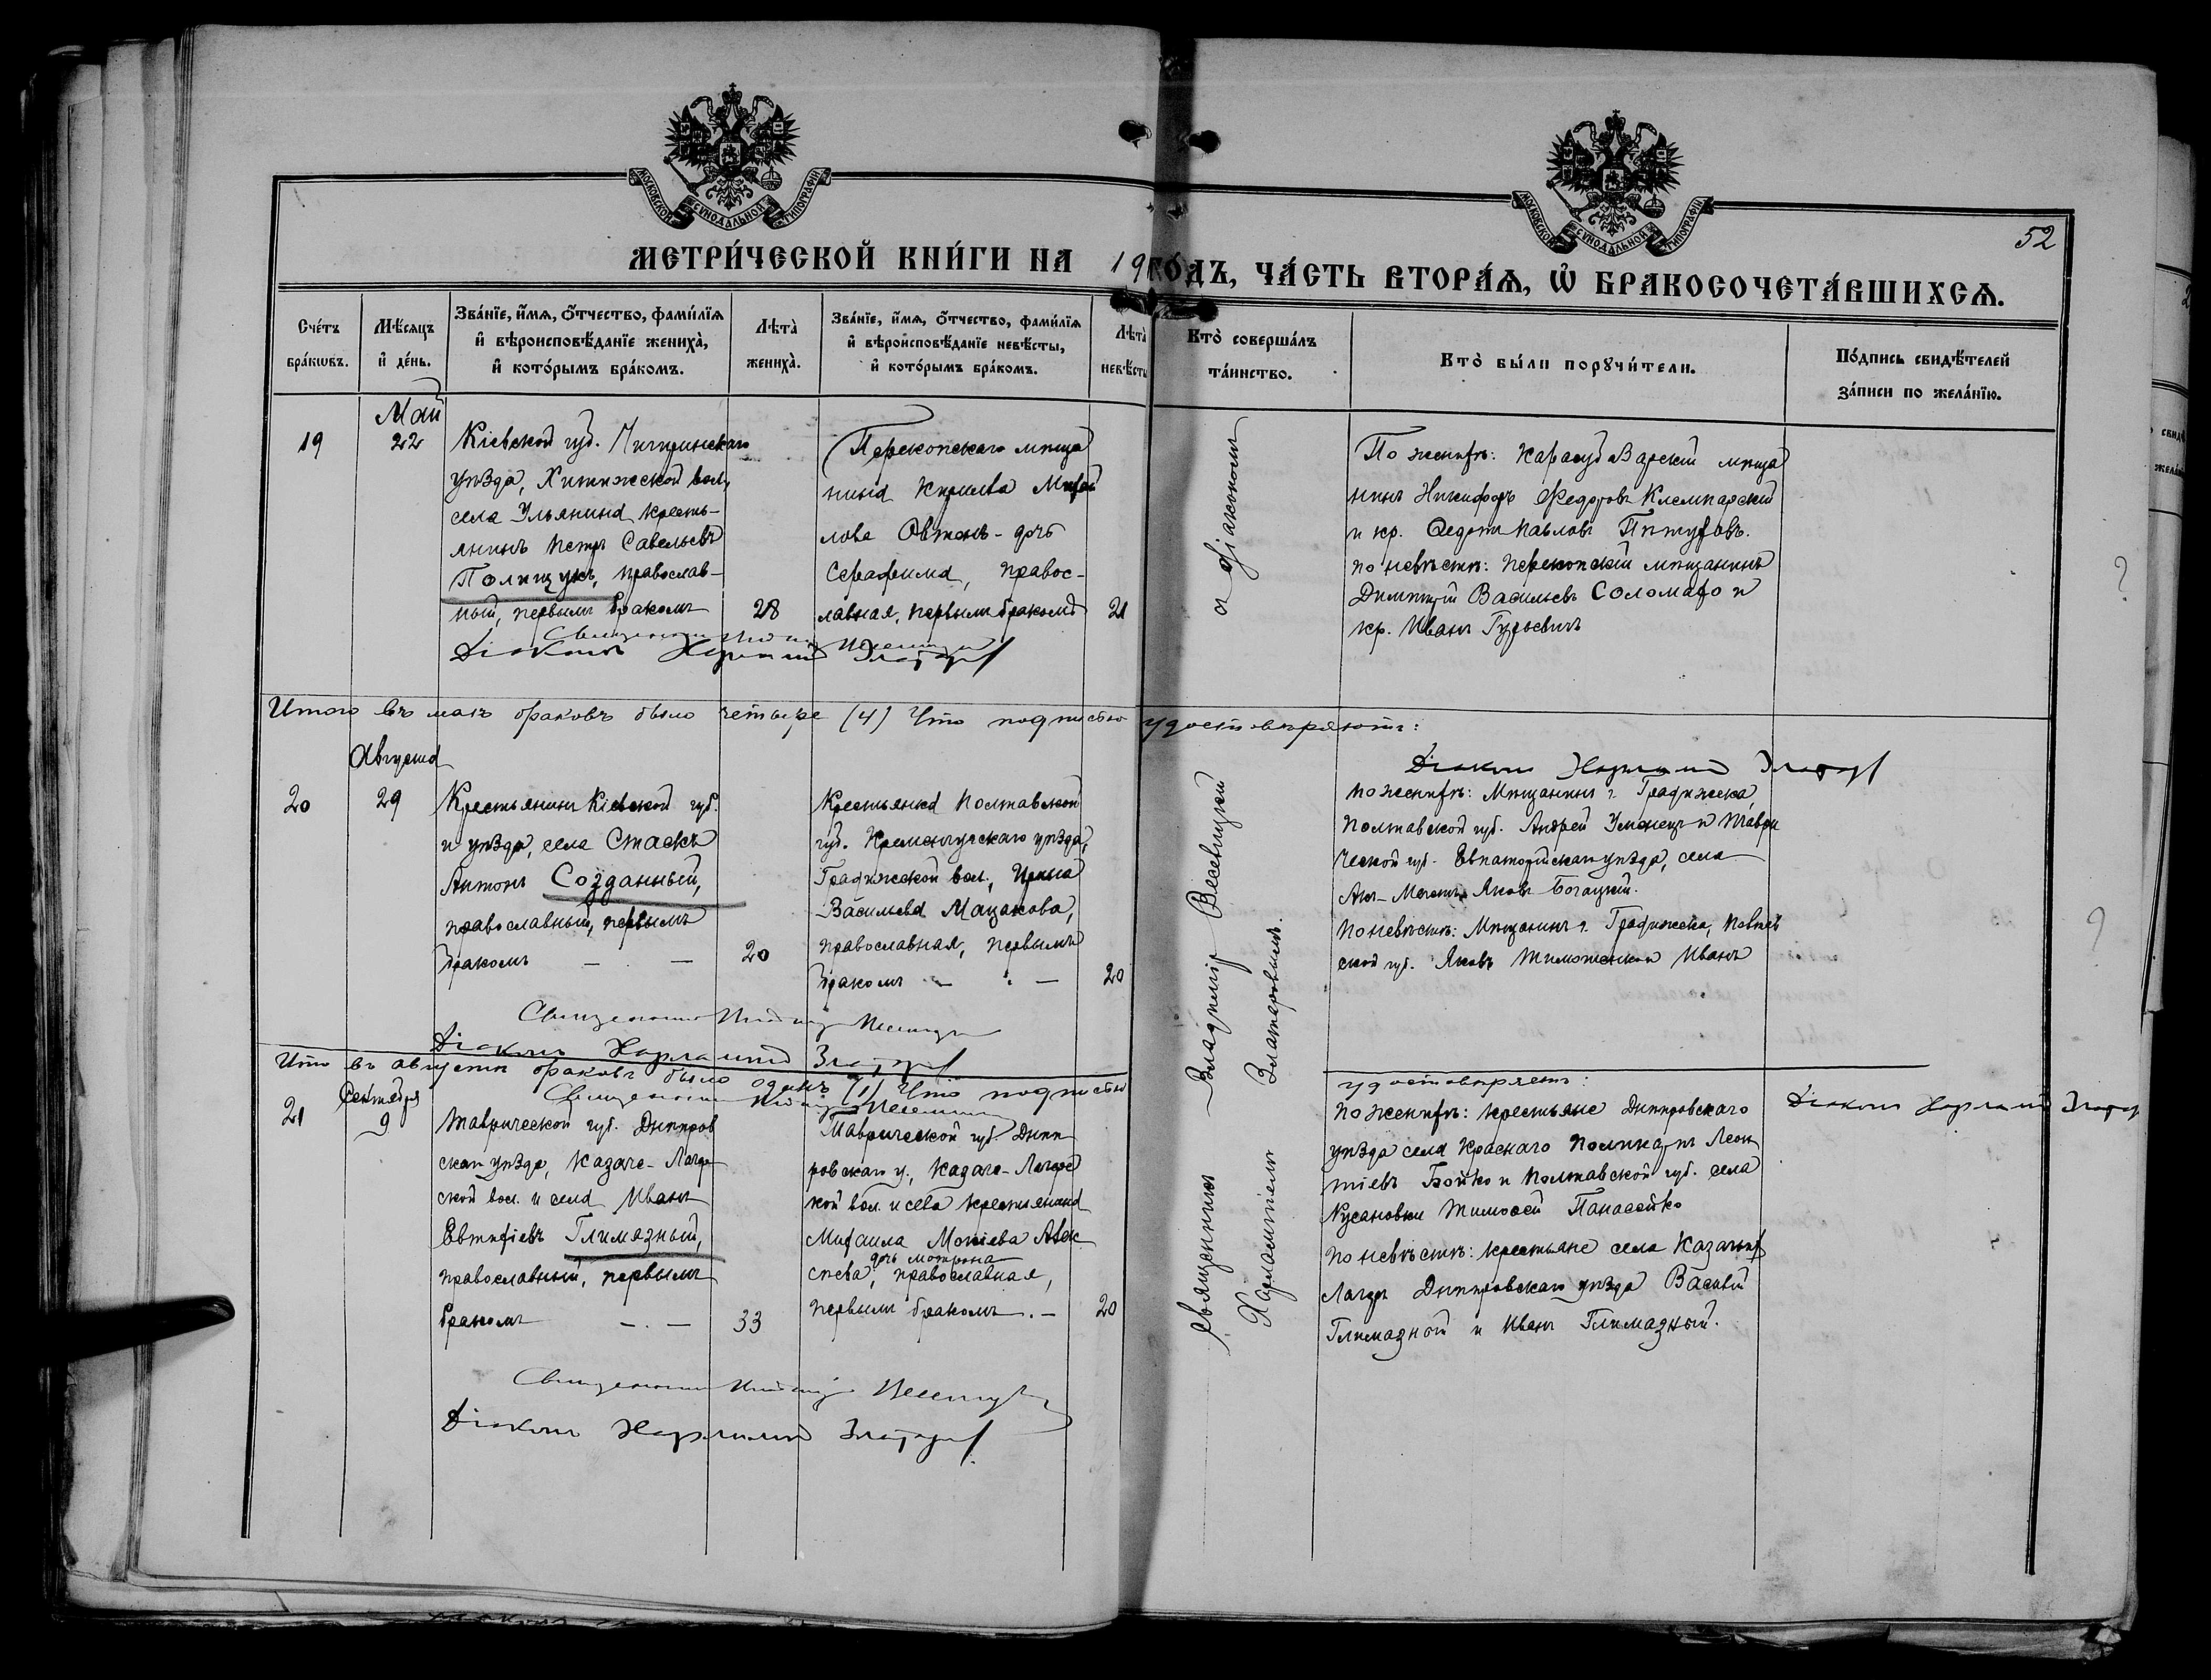 МОСКОВСКОЙ СѴНОДАЛЬНОЙ ТИПОГРАФІИ
МОСКОВСКОЙ СѴНОДАЛЬНОЙ ТИПОГРАФІИ
52
МЕТРИ́ЧЕСКОЙ КНИ́ГИ НА 19 ГО́ДЪ, ЧА́СТЬ ВТОРА́Ѧ, Ѡ҆ БРАКОСОЧЕТА́ВШИХСѦ.
Сче́тъ
бра́кѡвъ.
Мѣ́сѧцъ
и҆ де́нь.
Зва́нїе, и҆́мѧ, ѻ҆́тчество, фами́лїѧ
и҆ вѣроисповѣ́данїе жениха̀,
и҆ кото́рымъ бра́комъ.
Лѣта̀
жениха̀.
Зва́нїе, и҆́мѧ, ѻ҆́тчество, фами́лїѧ
и҆ вѣроисповѣ́данїе невѣ́сты,
и҆ кото́рымъ бра́комъ.
Лѣта̀
невѣ́сты
Кто̀ соверша́лъ
та́инство.
Кто̀ бы́ли порꙋчи́тели.
По́дпись свидѣ́телей
за́писи по жела́нїю.
Май
19
22
Кіевской губ. Чигиринскаго
уѣзда, вол.,
села кресть-
янинъ Петръ Савельевъ
Полищукъ, православ-
ный, первымъ бракомъ
28
Перекопскаго мѣща
нина Кирилла Михай
лова - дочь
Серафима, правос-
лавная, первымъ бракомъ
21
По женихѣ: мѣща
нинъ Никифоръ Федоровъ
и кр. Федотъ Павловъ
по невѣстѣ: Перекопскій мѣщанинъ
Димитрій Васильевъ Соломахо и
кр. Иванъ Гурьевичъ
Священникъ
Діаконъ Харлампій
Итого въ маѣ браковъ было четыре (4) Что подписью удостовѣряютъ:
Діаконъ Харлампій
Августа
20
29
Крестьянинъ Кіевской губ.
и уѣзда, села
Антонъ Созданный,
православный, первымъ
бракомъ — . —
20
Крестьянка Полтавской
губ. Кременчугскаго уѣзда,
Градижской вол.,
Васильева Мацакова,
православная, первымъ
бракомъ — . —
20
по женихѣ: Мѣщанинъ г. Градижска,
Полтавской губ. Андрей и Таври
ческой губ. Евпаторійскаго уѣзда, села
Ак-Мечеть Яковъ Богацкій.
По невѣстѣ: Мѣщанинъ г. Градижска, Полтав
ской губ. Яковъ Тимошенко и Иванъ
Священникъ
Діаконъ Харлампій
Итого въ августѣ браковъ было одинъ (1) Что подписью
удостовѣряетъ:
Священникъ
Діаконъ Харлампій
Сентября
21
9
Таврической губ. Днѣпров
скаго уѣзда, Казаче-Лагер
ской вол. и села Иванъ
Евтихіевъ Глимазный,
православный, первымъ
бракомъ — . —
33
Таврической губ. Днѣп
ровскаго у., Казаче-Лагерс
кой вол. и села крестьянина
Михаила
дочь Мотрона
православная,
первымъ бракомъ . —
20
по женихѣ: крестьяне Днѣпровскаго
уѣзда села Краснаго Леон
тіевъ Бойко и Полтавской губ. села
Тимофей Панасейко
по невѣстѣ: крестьяне села Казачьих
Лагерь Днѣпровскаго уѣзда Василій
Глимазной и Иванъ Глимазный.
Священникъ
Діаконъ Харлампій
Священникъ Владиміръ с діакономъ
Харлампіемъ Златоровымъ.